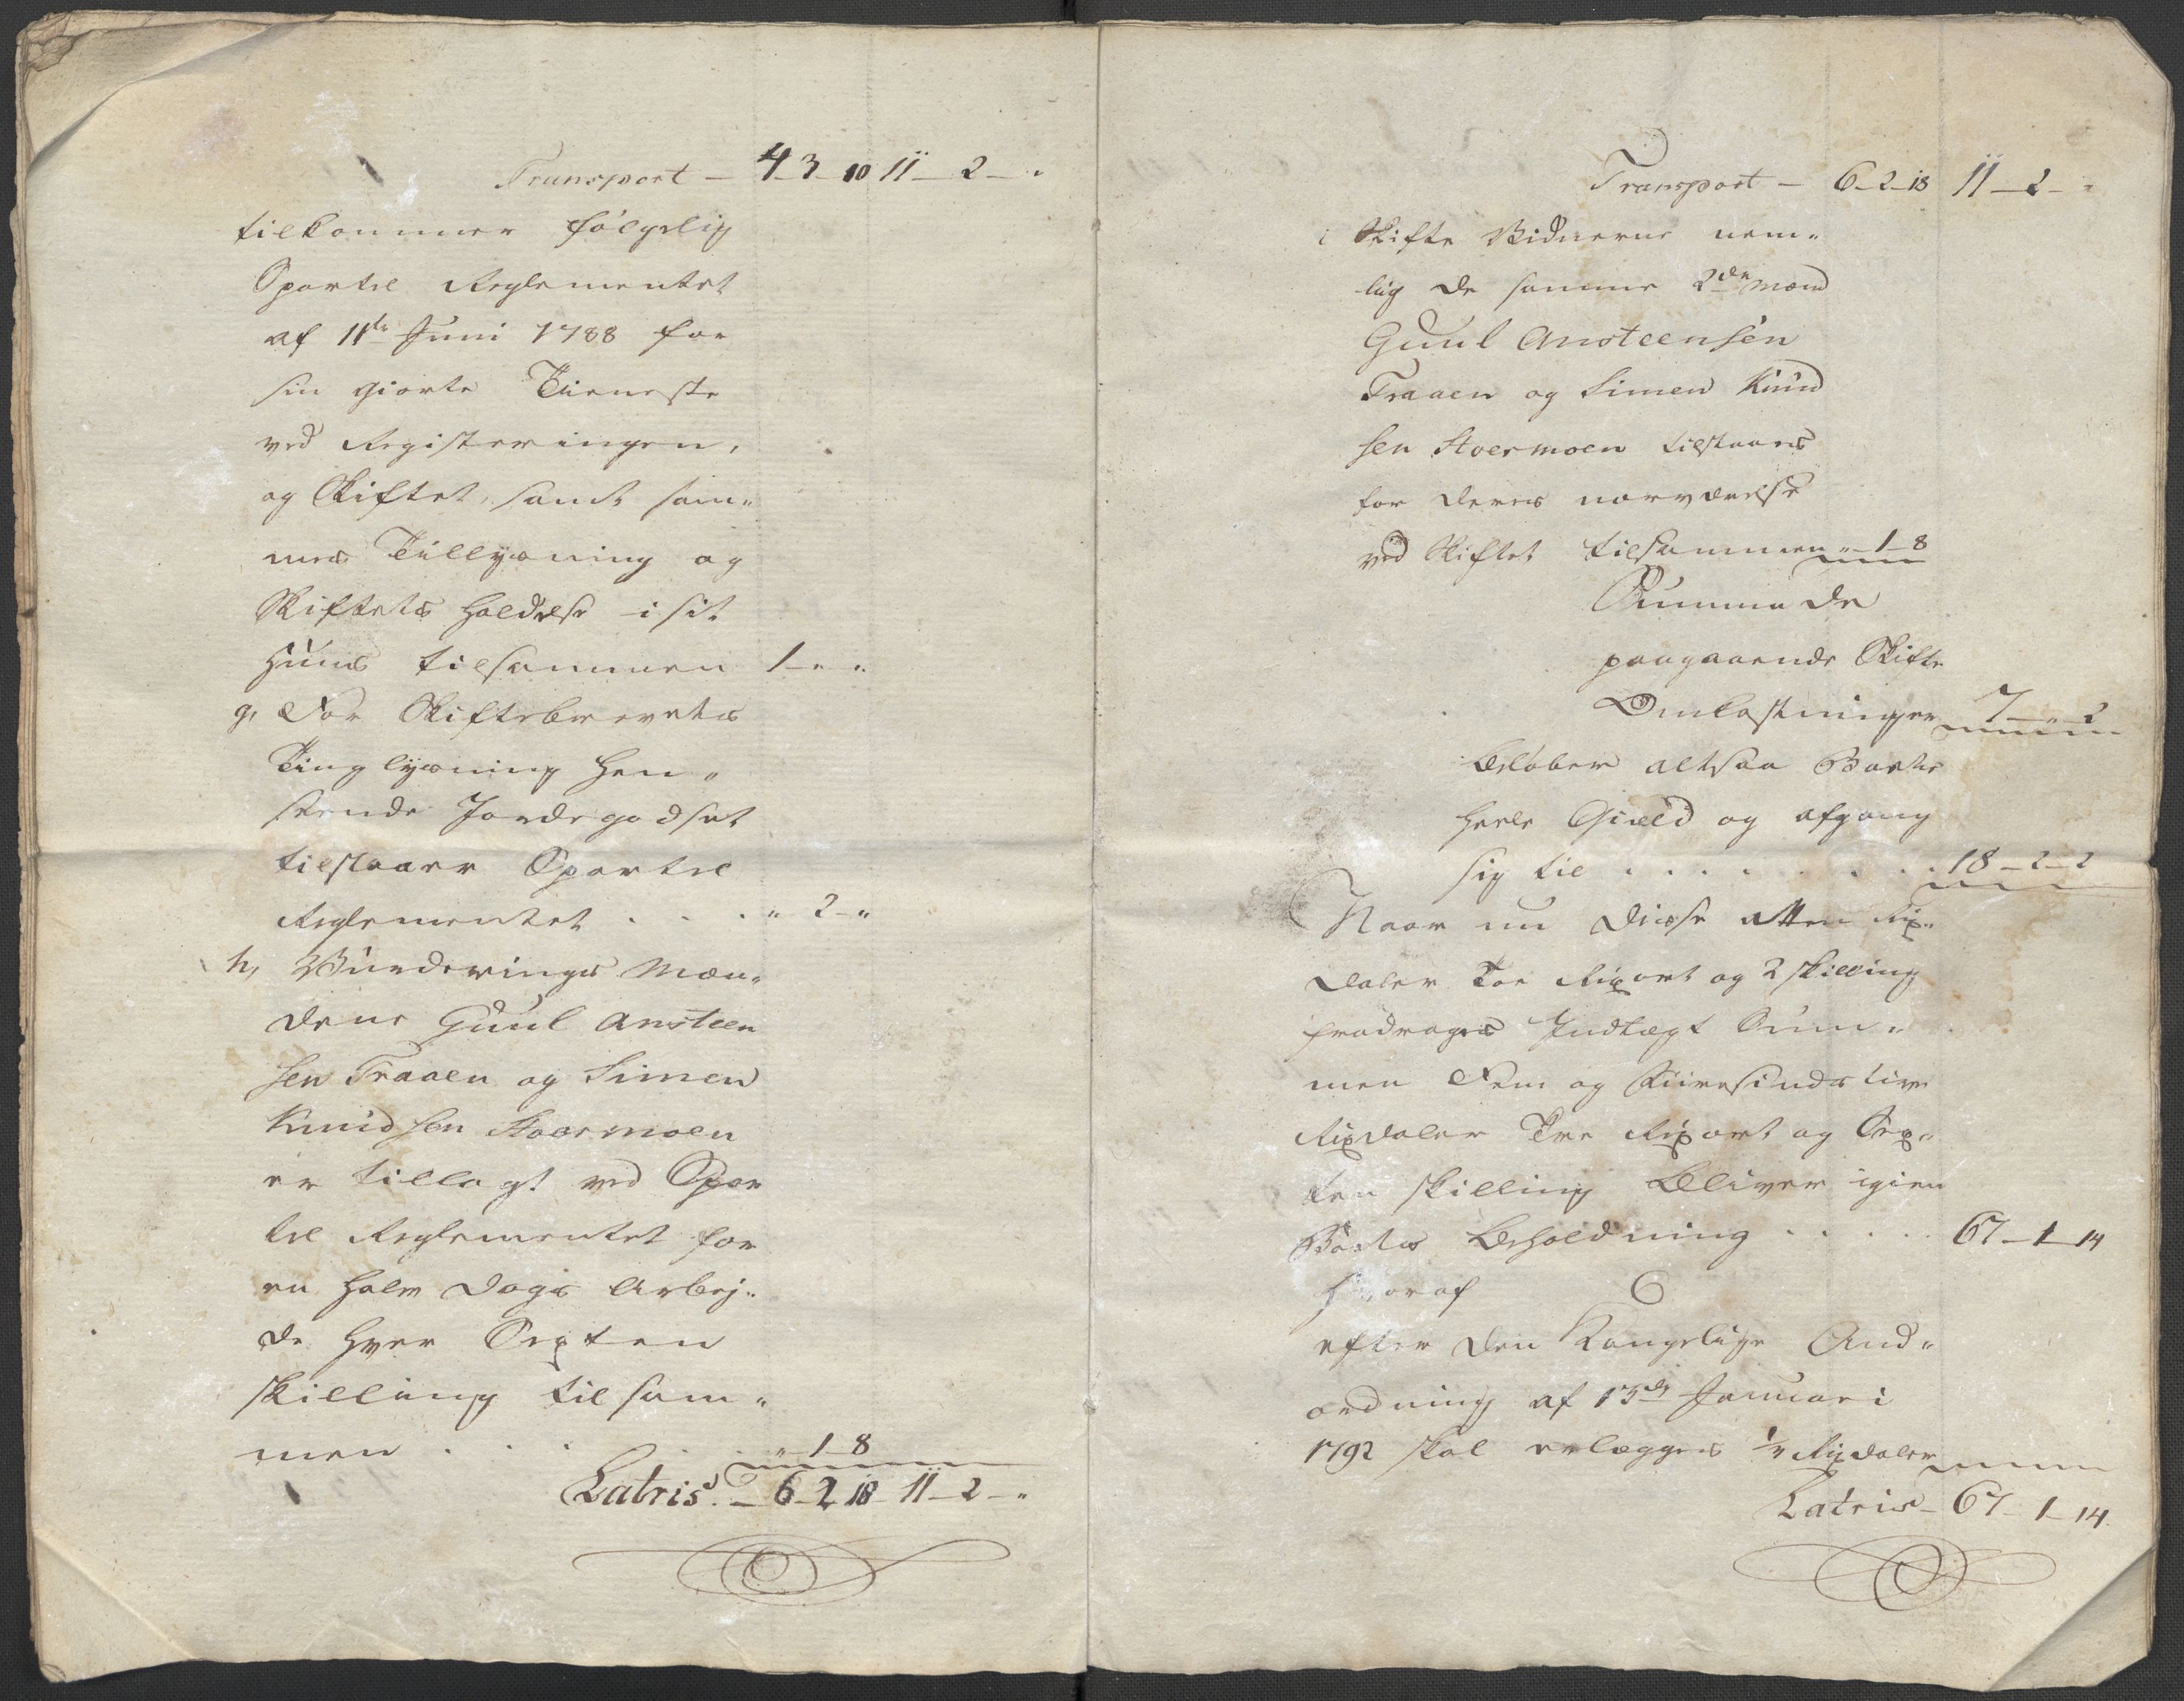 Transport — 4_3_10 11_2_"
tilkommer følgelig
Sportel Reglementet
af 11te Juni 1788 for
sin giorte Tieneste
ved Registeringen,
og Skiftet, samt sam„
mes Tillysning og
Skiftets Holdelse i sit
Huus tilsammen 1_"_"
g, For Skiftebrevets
Tinglysning hen„
seende Jordegodset
tilstaaer Sportel
Reglementet . . . " 2_"
h, Vurderings Mæn„
dene Guul Ansteen
sen Traaen og Simen
Knudsen Stoermoen
er tillagt ved Spor
tel Reglementet for
en halv Dags Arbej„
de hver Sexten
skilling tilsam„
men . . . . . "_1_8
Latris. _ 6_2_18 11_2_"
Transport — 6_2_18 11_2_"
i Skifte Vidnerne nem„
lig de samme 2de Mænd
Guul Ansteensen
Traaen og Simen Knud
sen Stoermoen tilstaaes
for deres nærværelse
ved Skiftet tilsammen "_1_8
Summa de
paagaaende Skifte
Omkostninger 7_"_2
Beløber altsaa Boets
heele Gield og afgang
sig til . . . . . . . 18_2_2
Naar nu disse atten Rix„
daler Toe Rixort og 2 skilling
fradrages Indtægt Sum„
men Fem og Fiiresinds tive
Rixdaler Tre Rixort og Sex„
ten skilling bliver igien
Boets Beholdning . . . . . 67_1_14
Hvoraf
efter den Kongelige And„
ordning af 13de Januari
1792 skal erlægges 1/4 Rixdaler
Latris _ 67_1_14